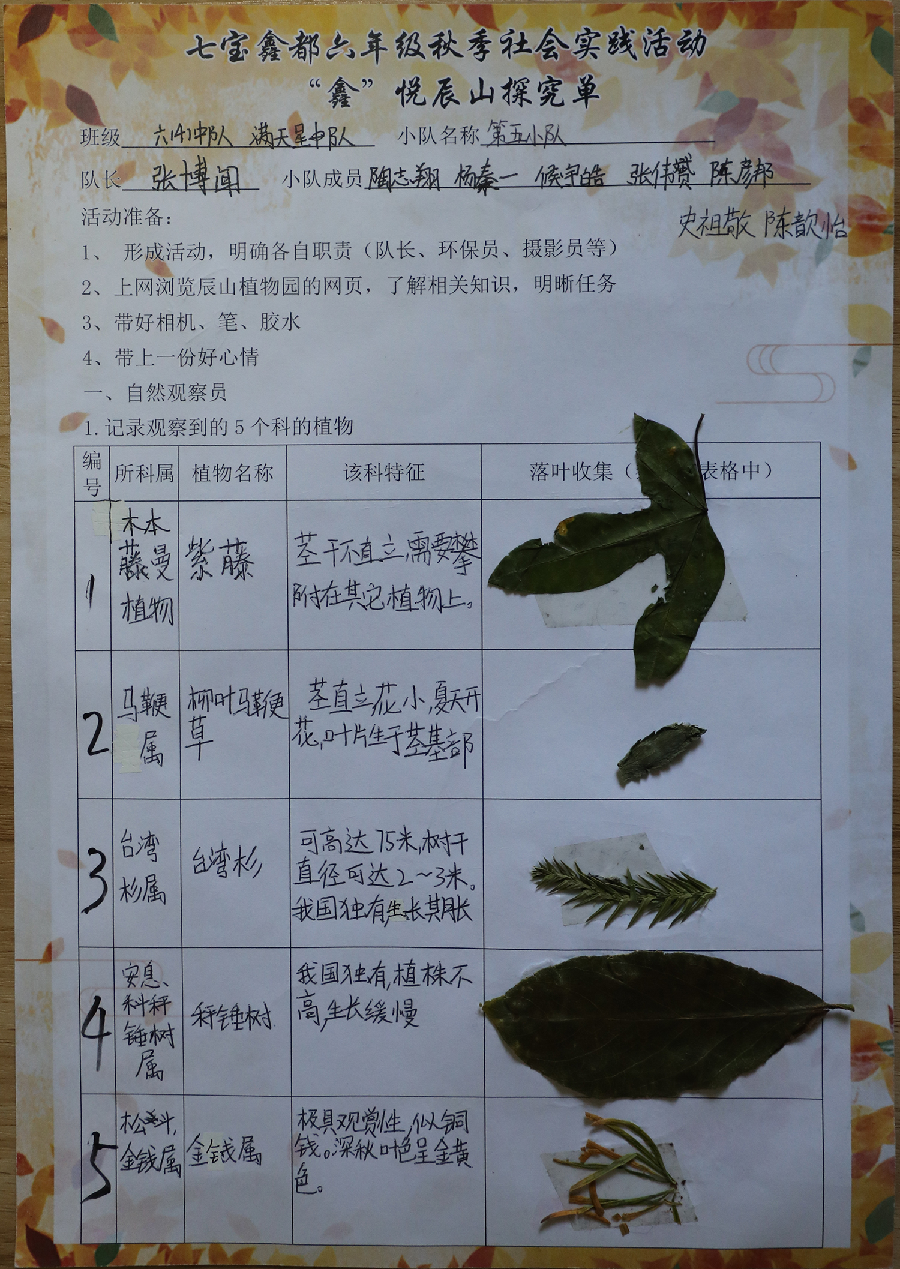 七宝鑫都六年级秋季社会实践活动
“鑫”悦辰山探究单
班级 六(4)中队 满天星中队 小队名称 第五小队
队长 张博闻 小队成员 陶志翔 杨秦一 候宇皓 张伟赟 陈彦邦
史祖敬 陈歆怡
活动准备:
1、 形成活动,明确各自职责(队长、环保员、摄影员等)
2、上网浏览辰山植物园的网页,了解相关知识,明晰任务
3、带好相机、笔、胶水
4、带上一份好心情
一、自然观察员
1.记录观察到的5个科的植物
编号 所科属 植物名称 该科特征 落叶收集( 表格中)
1
木本
藤曼
植物
紫藤
茎干不直立,需要攀
附在其它植物上。
2
马鞭
属
柳叶马鞭
草
茎直立,花小,夏天开
花,叶片生于茎基部
3
台湾
杉属
台湾杉
可高达75米,树干
直径可达2~3米。
我国独有,生长期长
4
安息、
科秤
锤树
属
秤锤树
我国独有,植株不
高,生长缓慢
5
松科,
金钱属
金钱属
极具观赏性,似铜
钱。深秋叶色呈金黄
色。